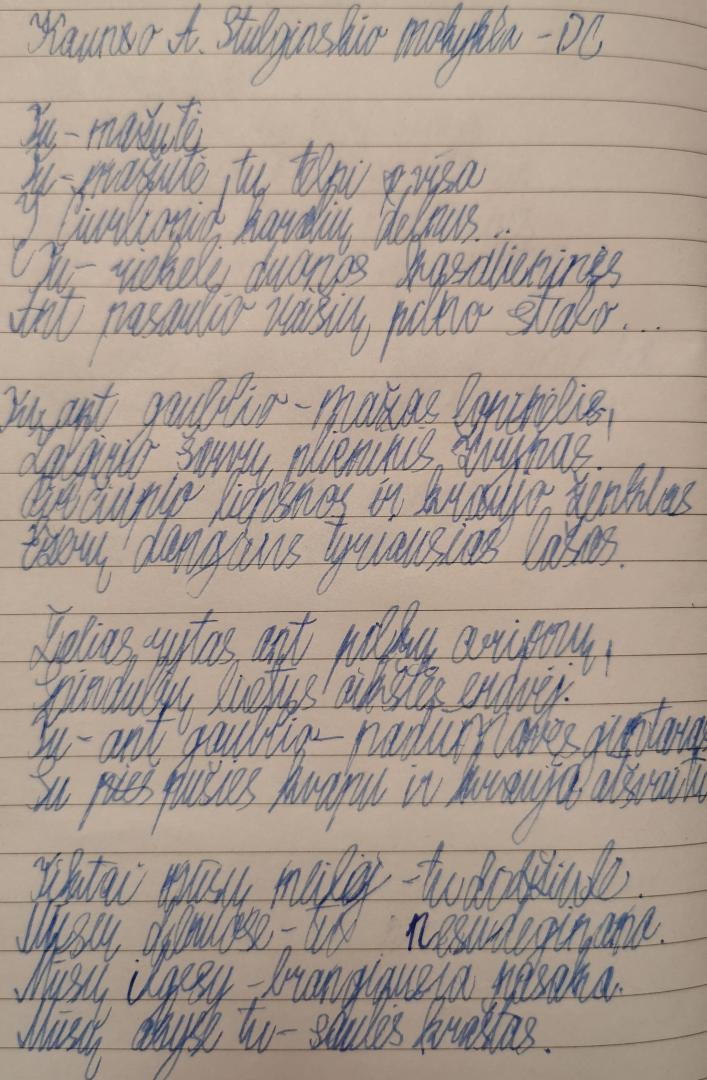 Kauno A. Stulginskio mokykla - DC
Tu - mažutė
Tu - mažutė, tu telpi visa
Į Čiurlionio karalių delnus...
Tu - riekelė duonos kasdieninės
Ant pasaulio vaišių pilno stalo...
Tu ant gaublio - mažas lopinėlis,
Žalgirio šarvų plieninis žvynas.
liepsnos ir kraujo ženklas
Ežerų dangaus tyriausias lašas.
Žalias rytas ant pilkų arimų,
Spindulių lietus aikštės erdvėj.
Tu - ant gaublio - padūmavęs gintaras
Su pušies kvapu ir kraujo atšvaitu
Tiktai mūsų meilėj - tu didžiulė.
Mūsų delnuose - tu nesudeginama.
Mūsų ilgesy - brangiausia pasaka.
Mūsų akyse tu - saulės kraštas.